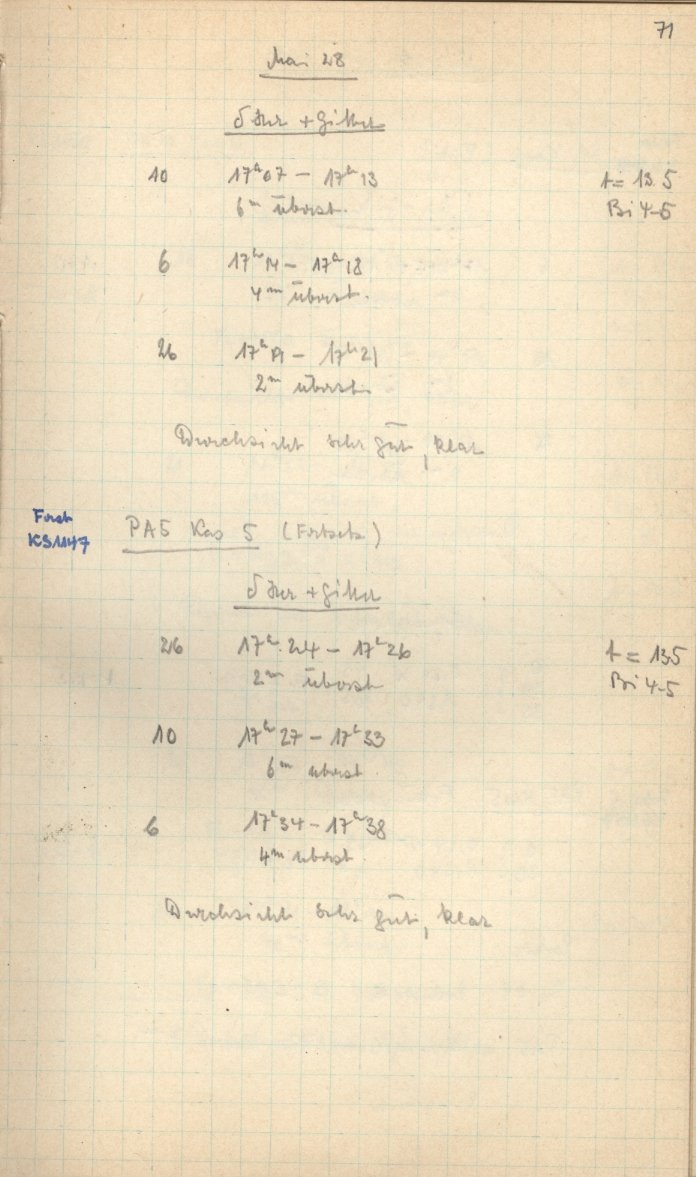 71
Mai 28
+ Gitter
10 17ʰ07 – 17ʰ13 t = 13.5
6ᵐ überst. Bi 4-5
6 17ʰ14 – 17ʰ18
4ᵐ überst.
26 17ʰ19 – 17ʰ21
2ᵐ überst.
Durchsicht sehr gut, klar
PA5 Kas 5 (Fortsetz)
KS1147
+ Gitter
26 17ʰ24 – 17ʰ26 t = 13.5
2ᵐ überst Bi 4-5
10 17ʰ27 – 17ʰ33
6ᵐ überst
6 17ʰ34 – 17ʰ38
4ᵐ überst.
Durchsicht sehr gut, klar